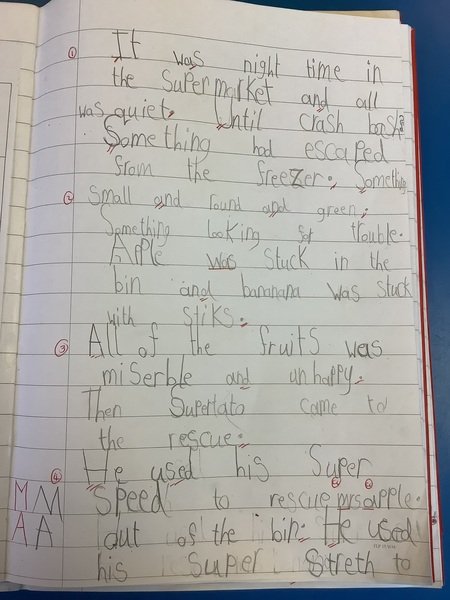 1 It was night time in
the supermarket and all
was quiet. Until crash bash
Something had escaped
from the freezer. Something
2 small and round and green.
Something looking for trouble.
Apple was stuck in the
bin and bananana was stuck
with stiks.
3 All of the fruits was
miserble and unhappy.
Then Supertato came to
the rescue.
4 He used his Super
M M Speed to rescue mrs apple.
A A out of the bin. He used
his super streth to